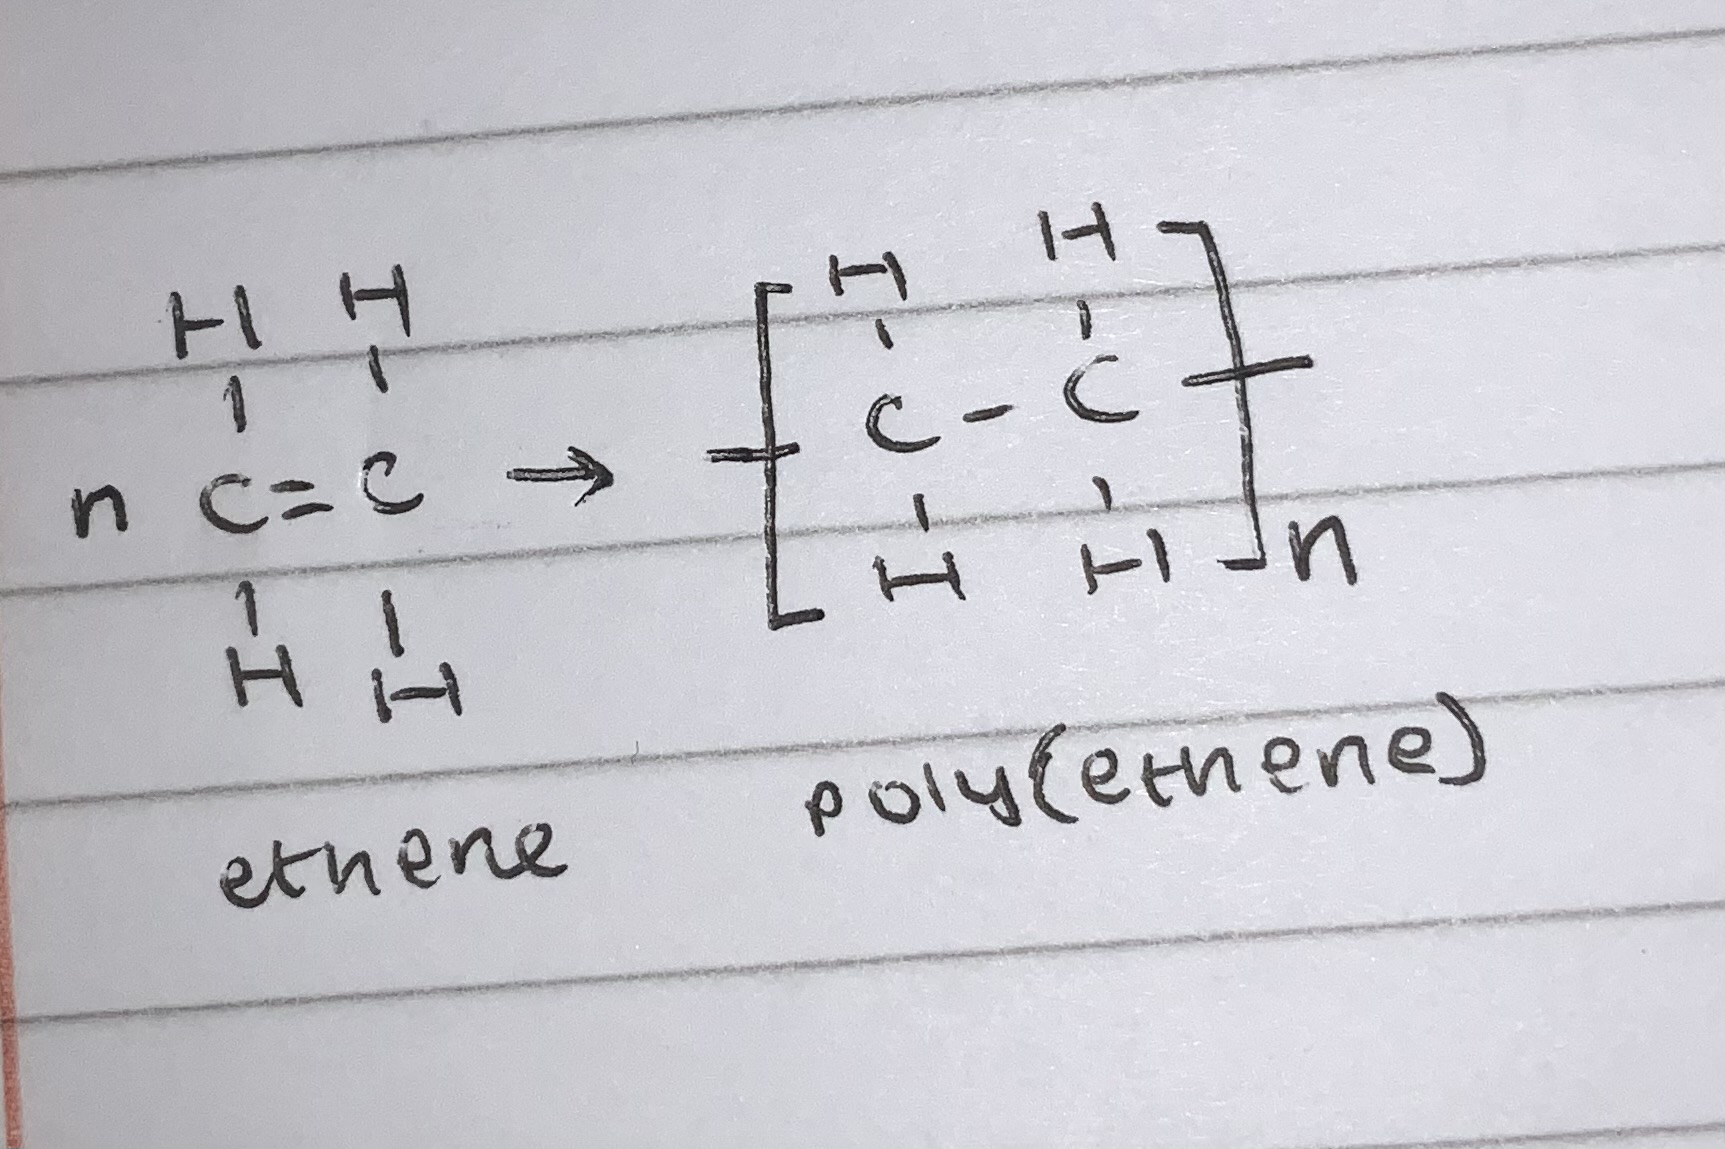 H H H H
n C=C → [ C - C ] n
H H H H
ethene poly(ethene)